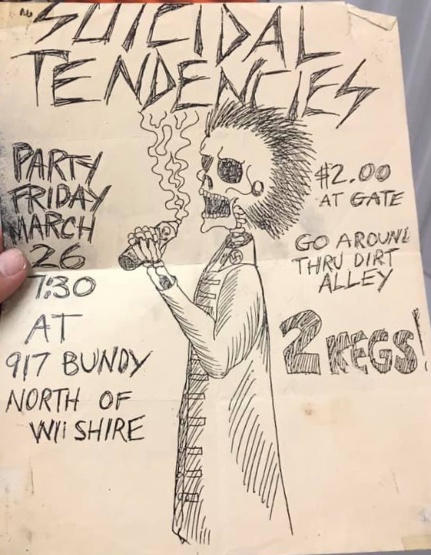 SUICIDAL
TENDENCIES
PARTY
FRIDAY
MARCH
26
7:30
AT
917 BUNDY
NORTH OF
WilSHIRE
$2.00
AT GATE
GO AROUND
THRU DIRT
ALLEY
2 KEGS!